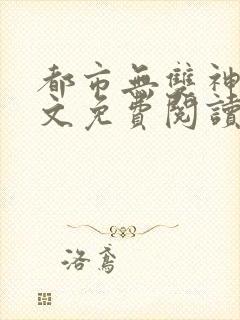 都市無雙神
文免費閱讀
洛鳶